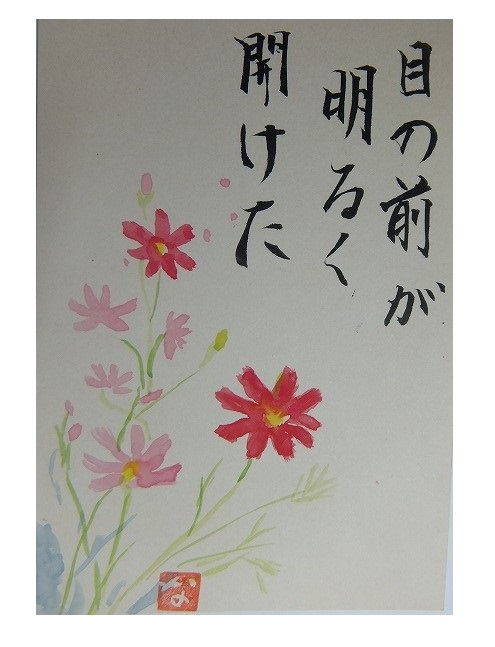 目の前が
明るく
開けた